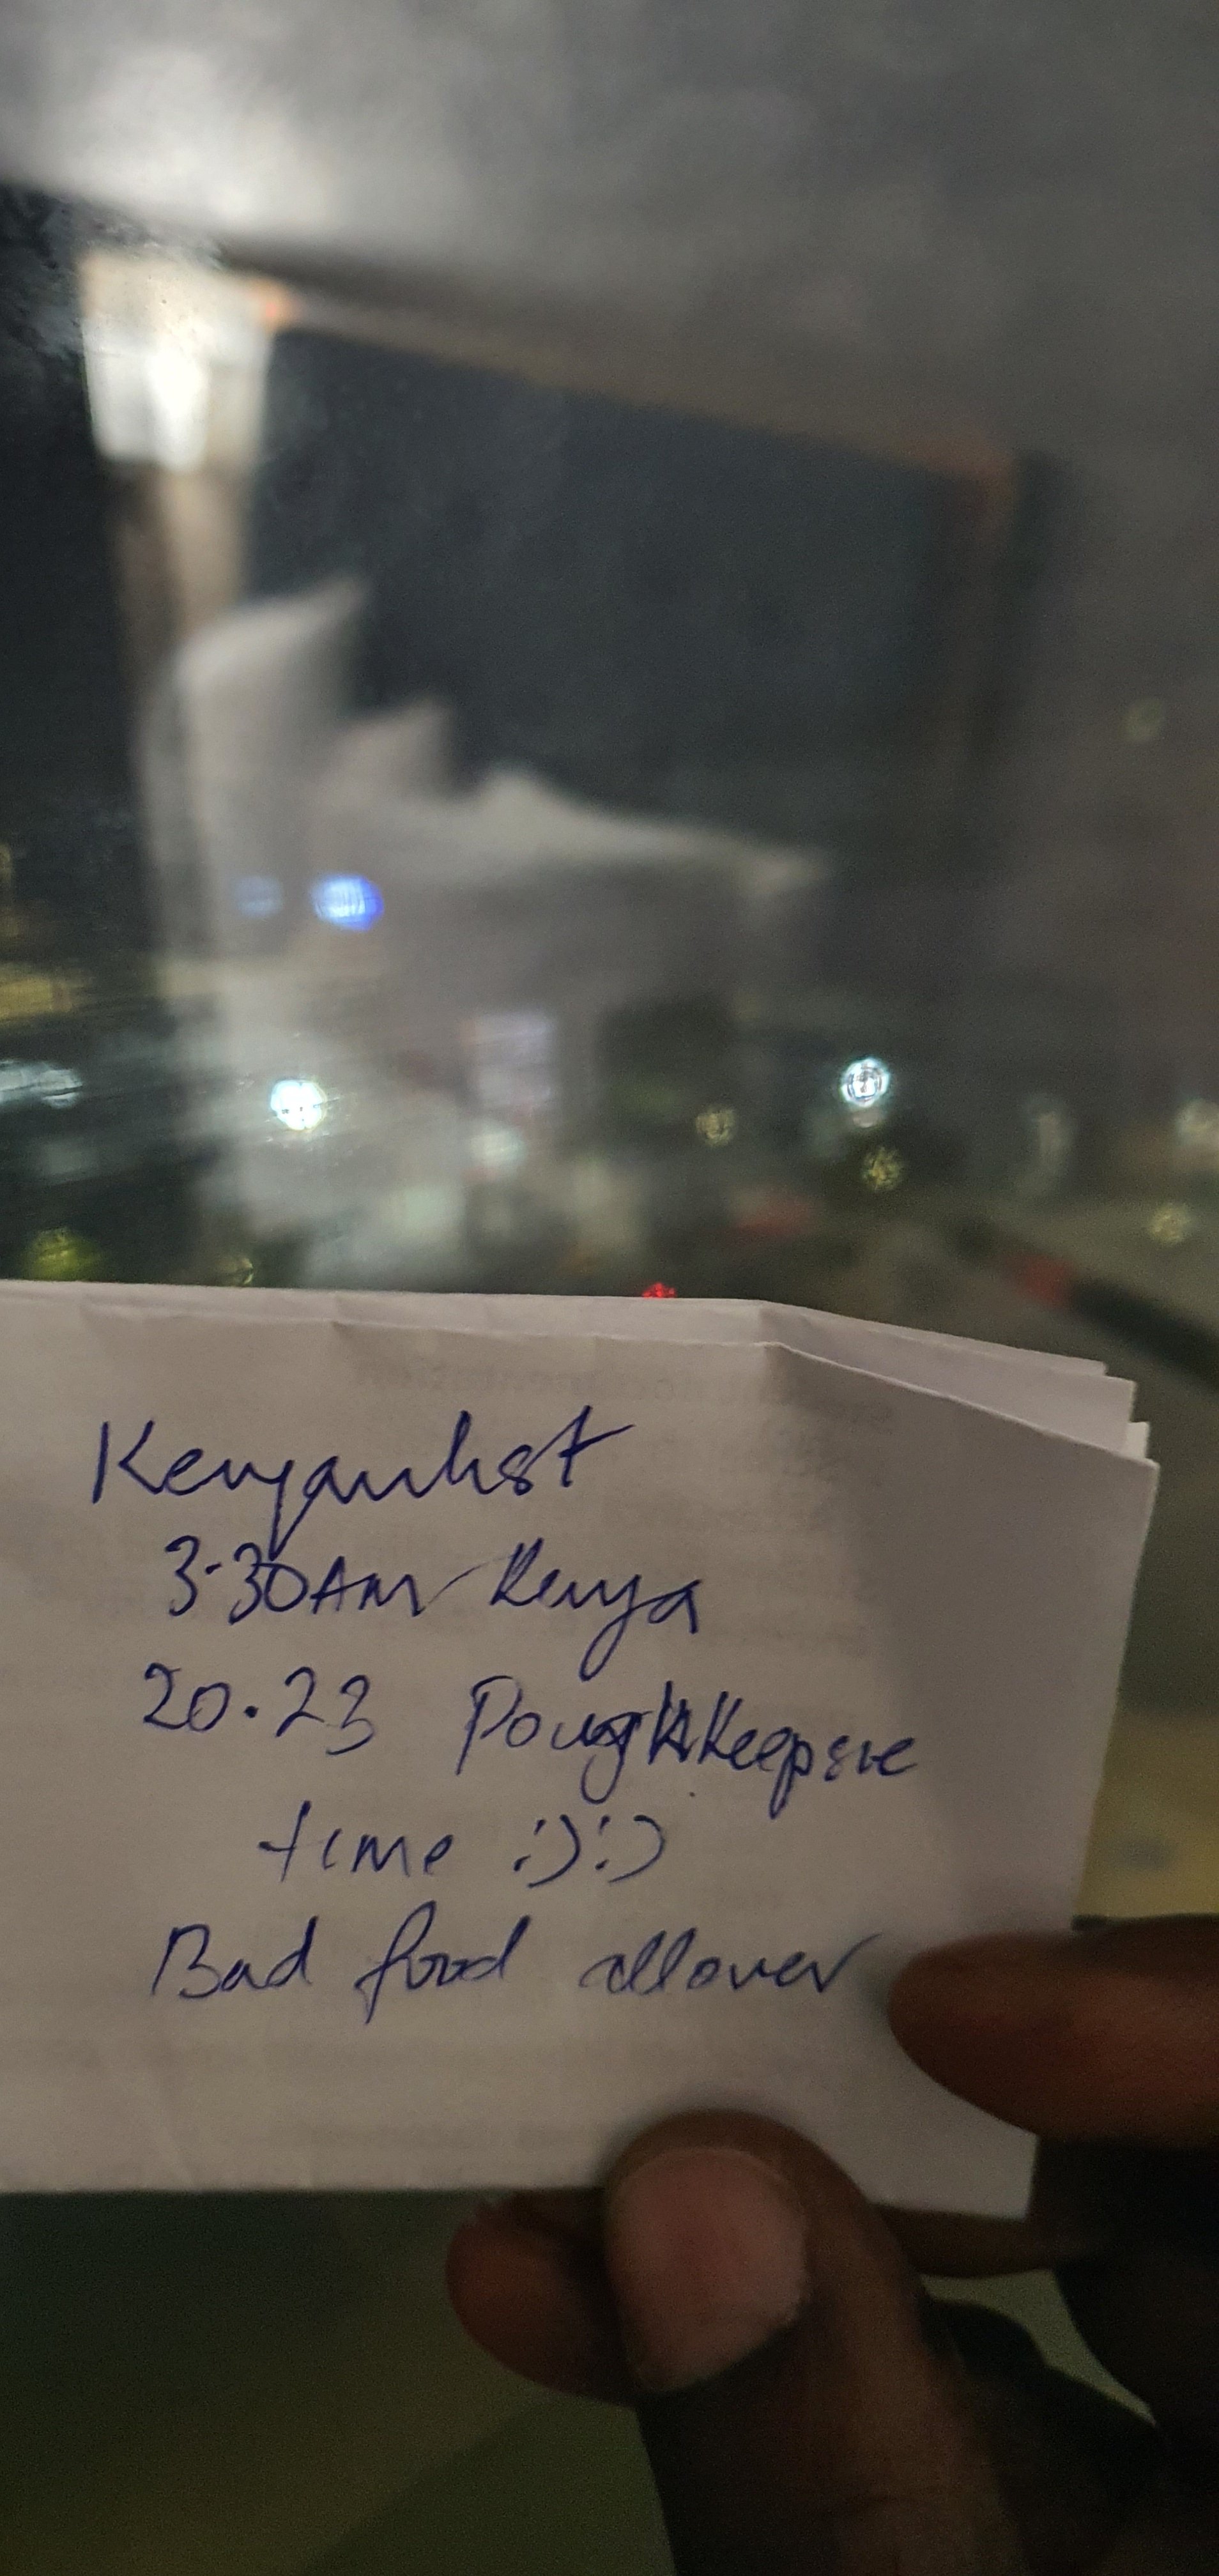 Kenyanhst
3.30AM Kenya
20.23 Poughkeepsie
time :):)
Bad food allover